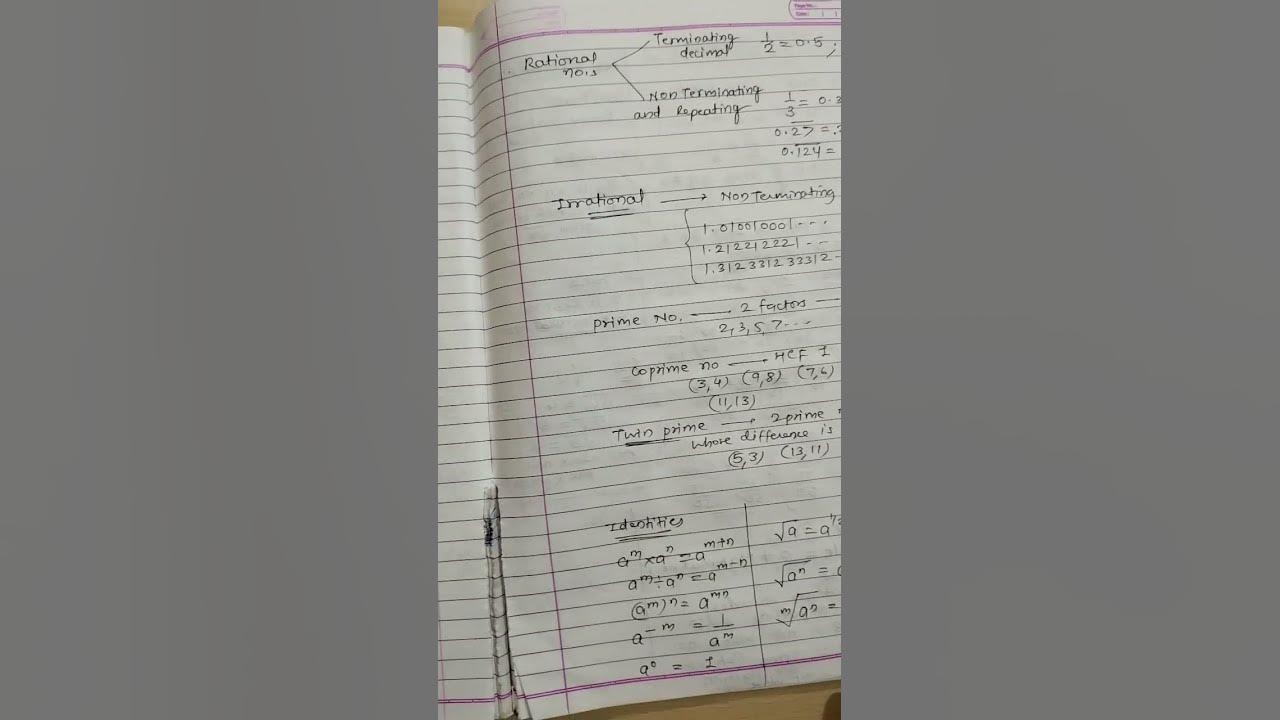 Page No.
Date:
Rational nos
Terminating decimal 1/2 = 0.5 ;
Non Terminating and Repeating
1/3 = 0.3
0.2̅7̅ = .2
0.1̅2̅4̅ =
Irrational → Non Terminating
1.010010001...
1.212212221...
1.31233123331 2-
prime No. — 2 factors —
2,3,5,7...
Coprime no — HCF 1
(3,4) (9,8) (7,6)
(11,13)
Twin prime → 2 prime
whose difference is
(5,3) (13,11)
Identities
aᵐ × aⁿ = aᵐ⁺ⁿ
aᵐ ÷ aⁿ = aᵐ⁻ⁿ
(aᵐ)ⁿ = aᵐⁿ
a⁻ᵐ = 1/aᵐ
a⁰ = 1
√a = a^1/2
√aⁿ = a
ᵐ√aⁿ =